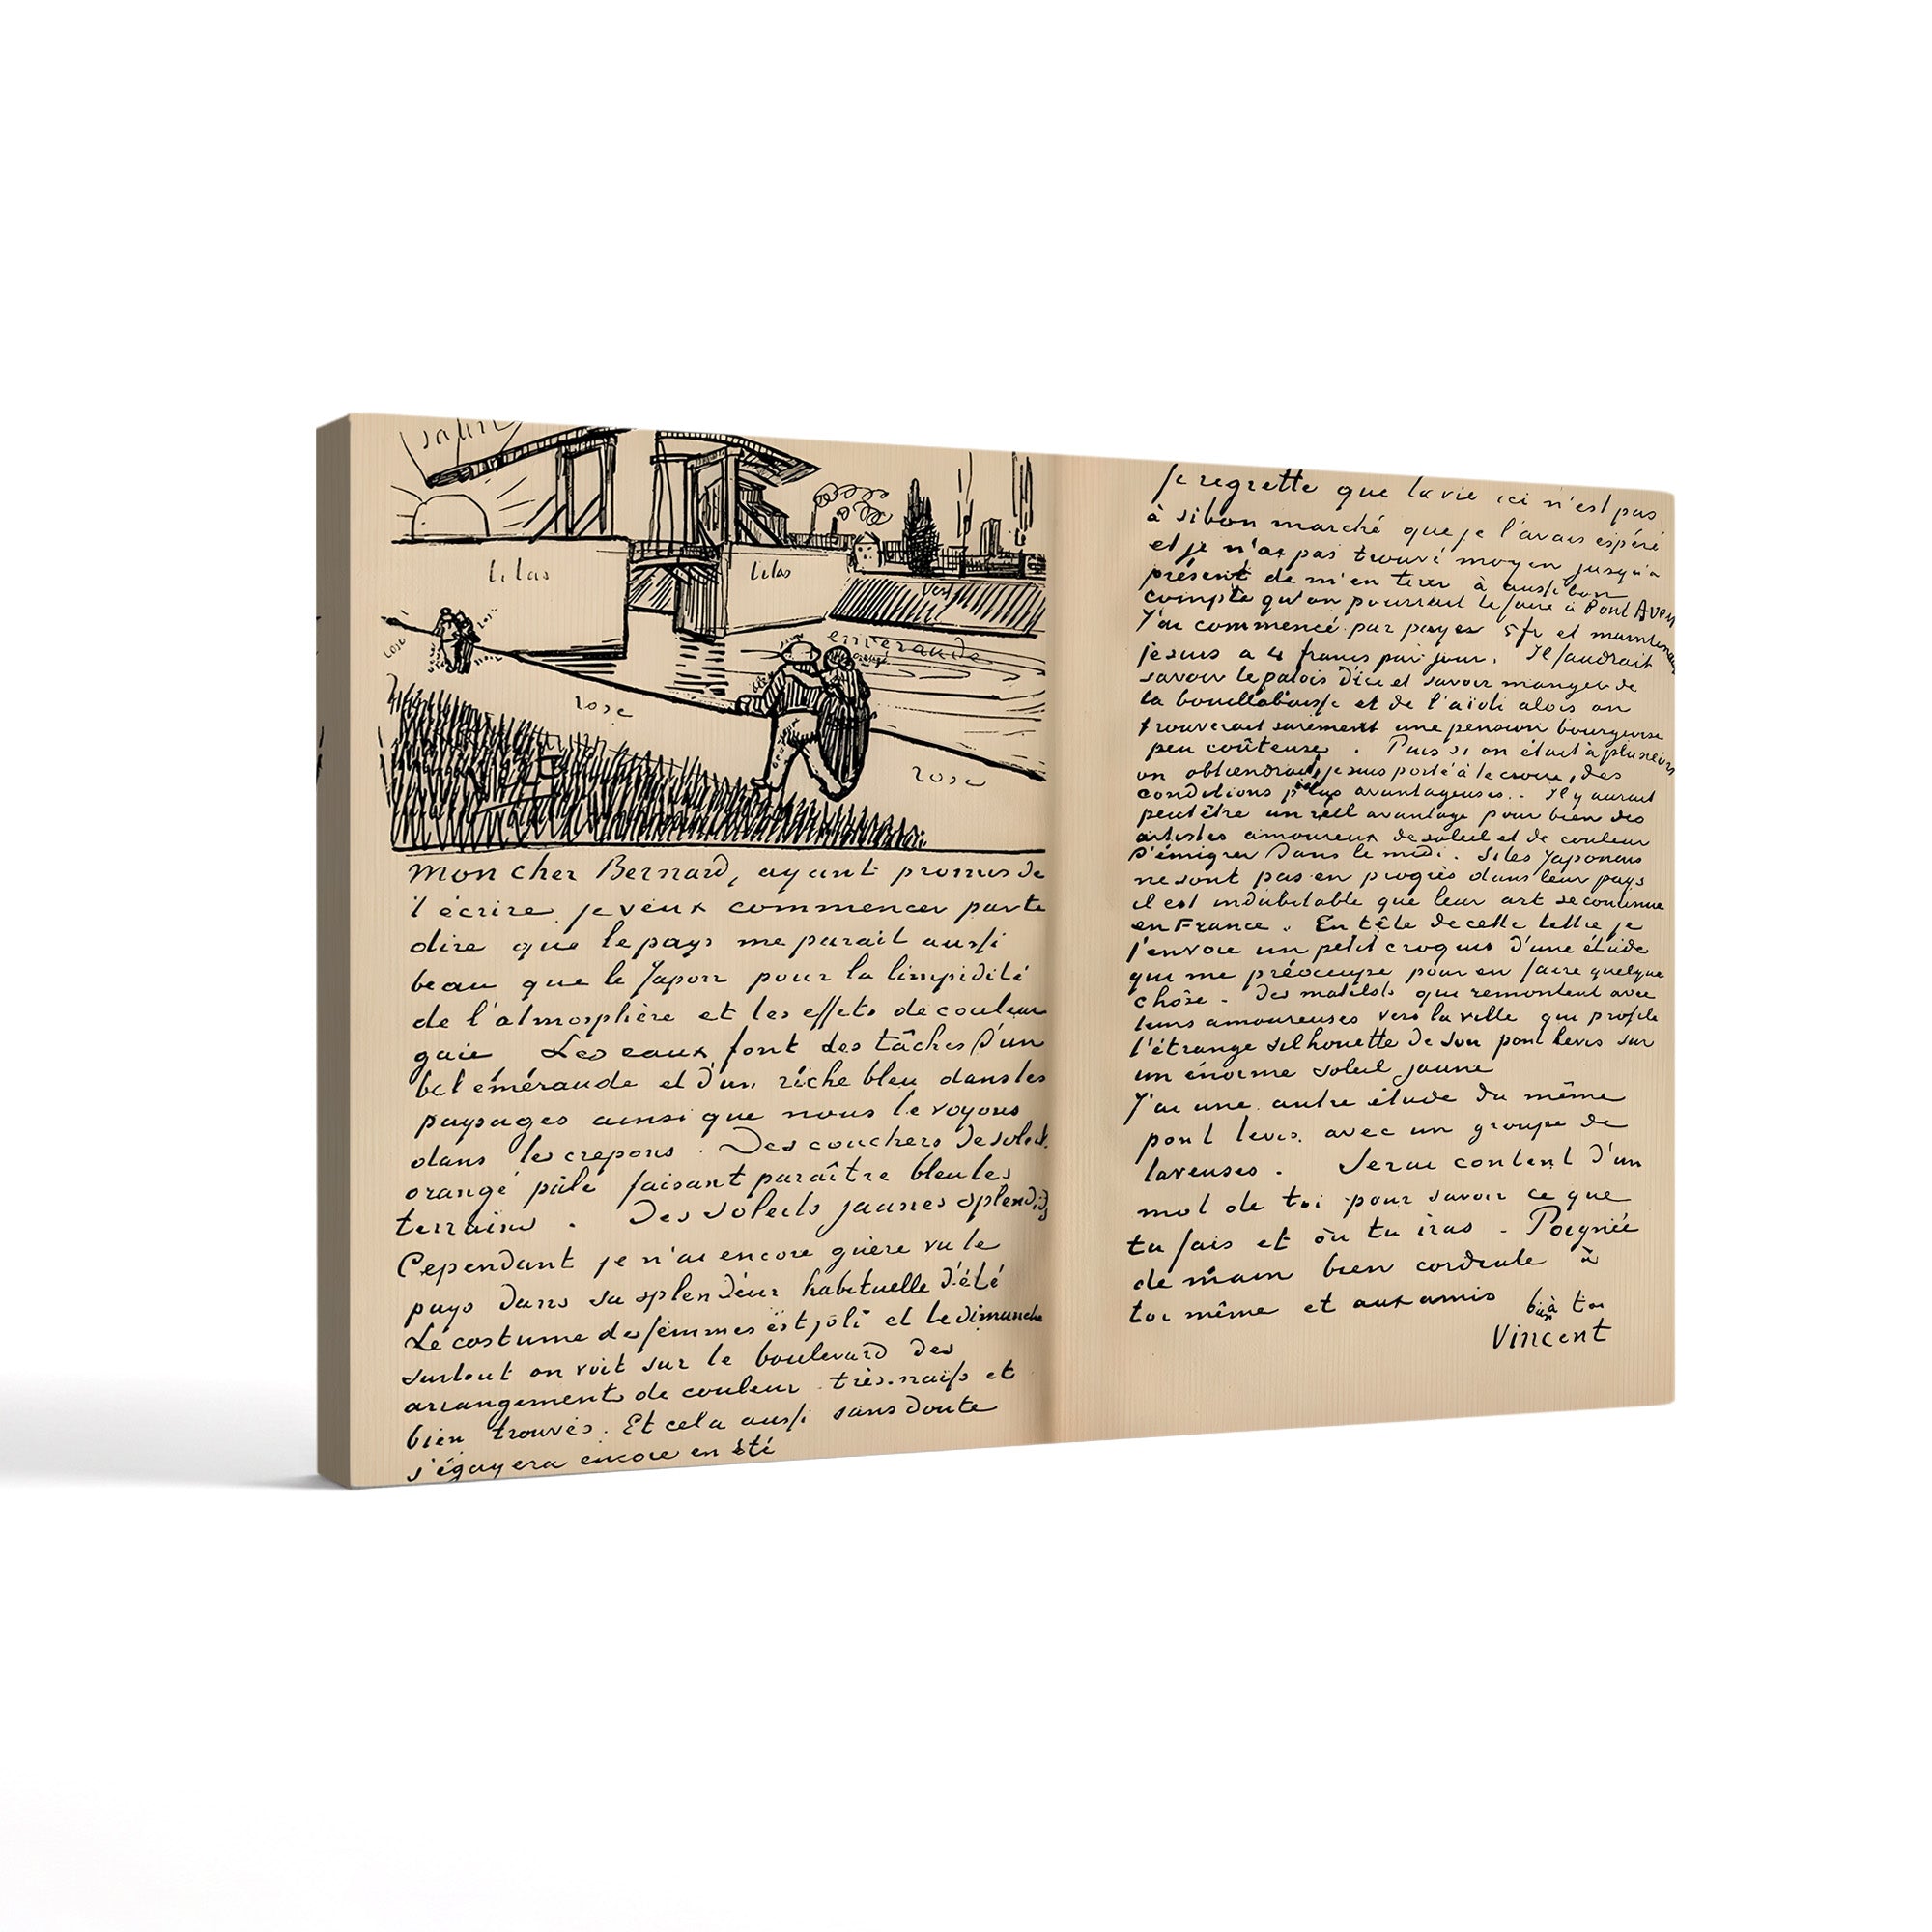 jaune
lilas
lilas
vert
émeraude
rose
rose
rose
Mon cher Bernard, ayant promis de
t'écrire je veux commencer par te
dire que le pays me parait aussi
beau que le Japon pour la limpidité
de l'atmosphère et les effets de couleur
gaie Les eaux font des tâches d'un
bel éméraude et d'un riche bleu dans les
paysages ainsi que nous le voyons
dans les crepons. Des couchers de soleil
orangé pâle faisant paraître bleu les
terrains. Des soleils jaunes splendides
Cependant je n'ai encore guère vu le
pays dans sa splendeur habituelle d'été
Le costume des femmes est joli et le dimanche
surtout on voit sur le boulevard des
arrangements de couleur très naifs et
bien trouvés. Et cela aussi sans doute
s'égayera encore en été
Je regrette que la vie ici n'est pas
à si bon marché que je l'avais espéré
et je n'ai pas trouvé moyen jusqu'à
présent de m'en tirer à aussi bon
compte qu'on pourrait le faire à Pont Aven
J'ai commencé par payer 5 fr et maintenant
je suis a 4 francs par jour. Il faudrait
savoir le patois d'ici et savoir manger de
la bouillabaisse et de l'aïoli alors on
trouverait surement une pension bourgeoise
peu coûteuse. Puis si on était à plusieurs
on obtiendrait, je suis porté à le croire, des
conditions plus avantageuses. Il y aurait
peut être un réel avantage pour bien des
artistes amoureux de soleil et de couleur
d'émigrer dans le midi. Si les Japonais
ne sont pas en progrès dans leur pays
il est indubitable que leur art se continue
en France. En tête de cette lettre je
t'envoie un petit croquis d'une étude
qui me préoccupe pour en faire quelque
chôse - Des matelots qui remontent avec
leurs amoureuses vers la ville qui profile
l'étrange silhouette de son pont levis sur
un énorme soleil jaune
J'ai une autre étude du même
pont levis avec un groupe de
laveuses. Serai content d'un
mot de toi pour savoir ce que
tu fais et où tu iras - Poignée
de main bien cordiale à
toi même et aux amis b à toi
Vincent